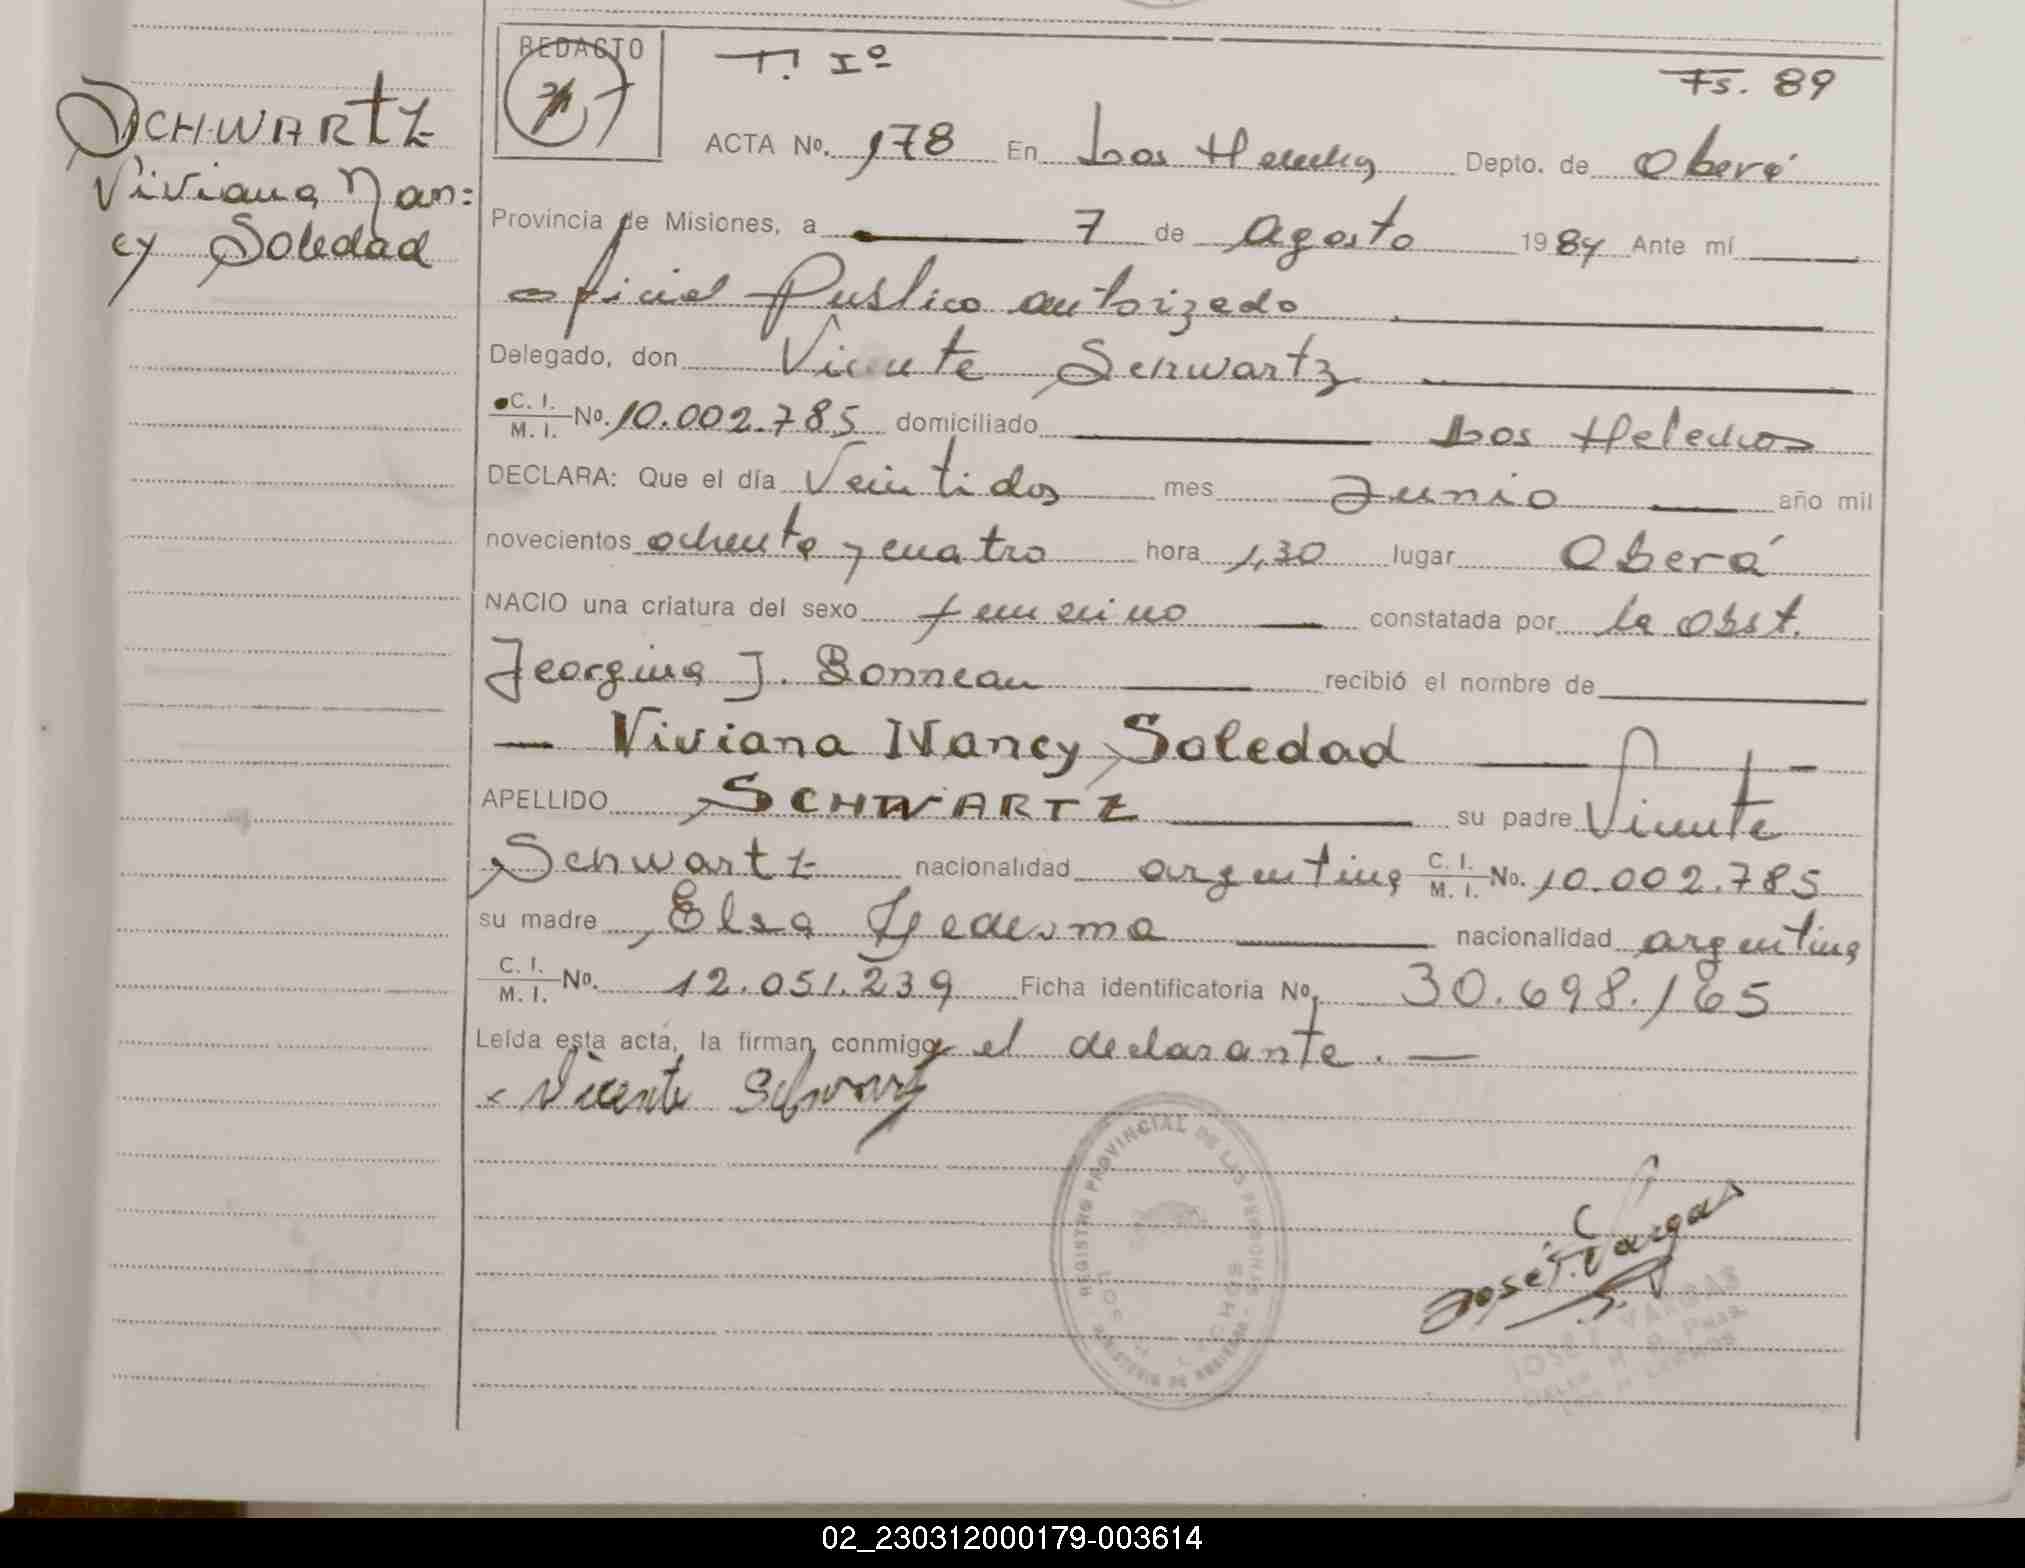 REDACTO
T. Iº
Fs. 89
SCHWARTZ
Viviana Nan=
cy Soledad
ACTA No. 178 En Los Helechos Depto. de Oberá
Provincia de Misiones, a 7 de Agosto 1984 Ante mí
oficial Publico autorizado
Delegado, don Vicente Schwartz
C. I. / M. I. No. 10.002.785 domiciliado Los Helechos
DECLARA: Que el día Veintidos mes Junio año mil
novecientos ochenta y cuatro hora 1,30 lugar Oberá
NACIO una criatura del sexo femenino constatada por la Obst.
Jeorgina J. Bonneau recibió el nombre de
Viviana Nancy Soledad
APELLIDO SCHWARTZ su padre Vicente
Schwartz nacionalidad argentina C. I. / M. I. No. 10.002.785
su madre Elsa Ledesma nacionalidad argentina
C. I. / M. I. No. 12.051.239 Ficha identificatoria No. 30.698.165
Leída esta acta, la firman conmigo el declarante.
x Vicente Schwartz
REGISTRO PROVINCIAL DE LAS PERSONAS
MINISTERIO DE GOBIERNO
LOS HELECHOS
José T. Vargas
JOSE T. VARGAS
02_230312000179-003614